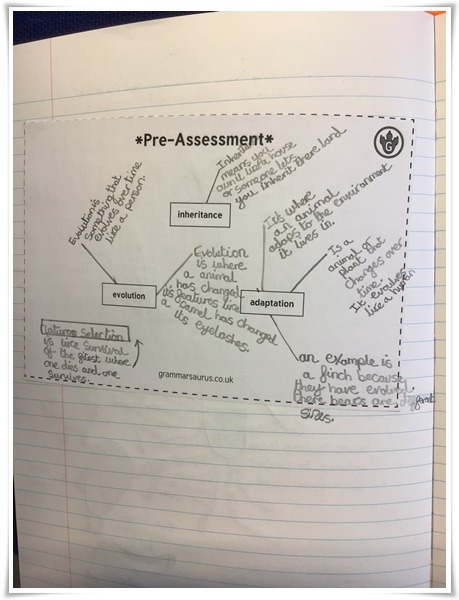 *Pre-Assessment*
G
Inherite
means you
own it like a house
or someone lets
you inherit there land
inheritance
Evolution is
something that
evolves over time
like a person.
It's where
an animal
adaps to the environment
it lives in.
Is a
animal or
plant that
changes over
time.
It evovles
like a human
Evolution
is where
a animal
has changed
it's features like
a camel has changed
its eyelashes.
evolution
adaptation
Natures selection
is like survival
of the fitest where
one dies and one
survives.
an example is
a finch because
they have evolved
there beaks are different
sizes.
grammarsaurus.co.uk